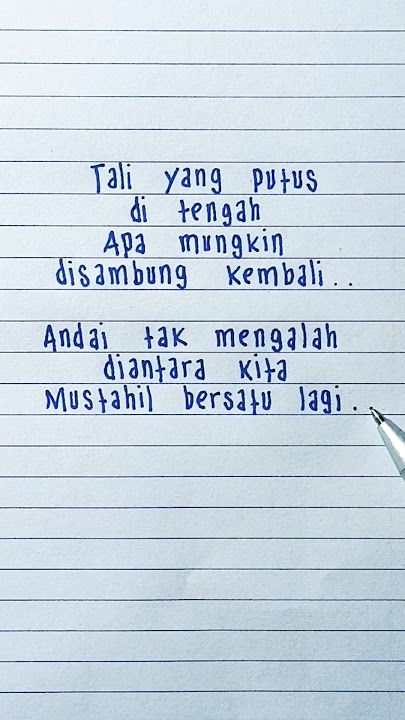 Tali yang putus
di tengah
Apa mungkin
disambung kembali..
Andai tak mengalah
diantara kita
Mustahil bersatu lagi..